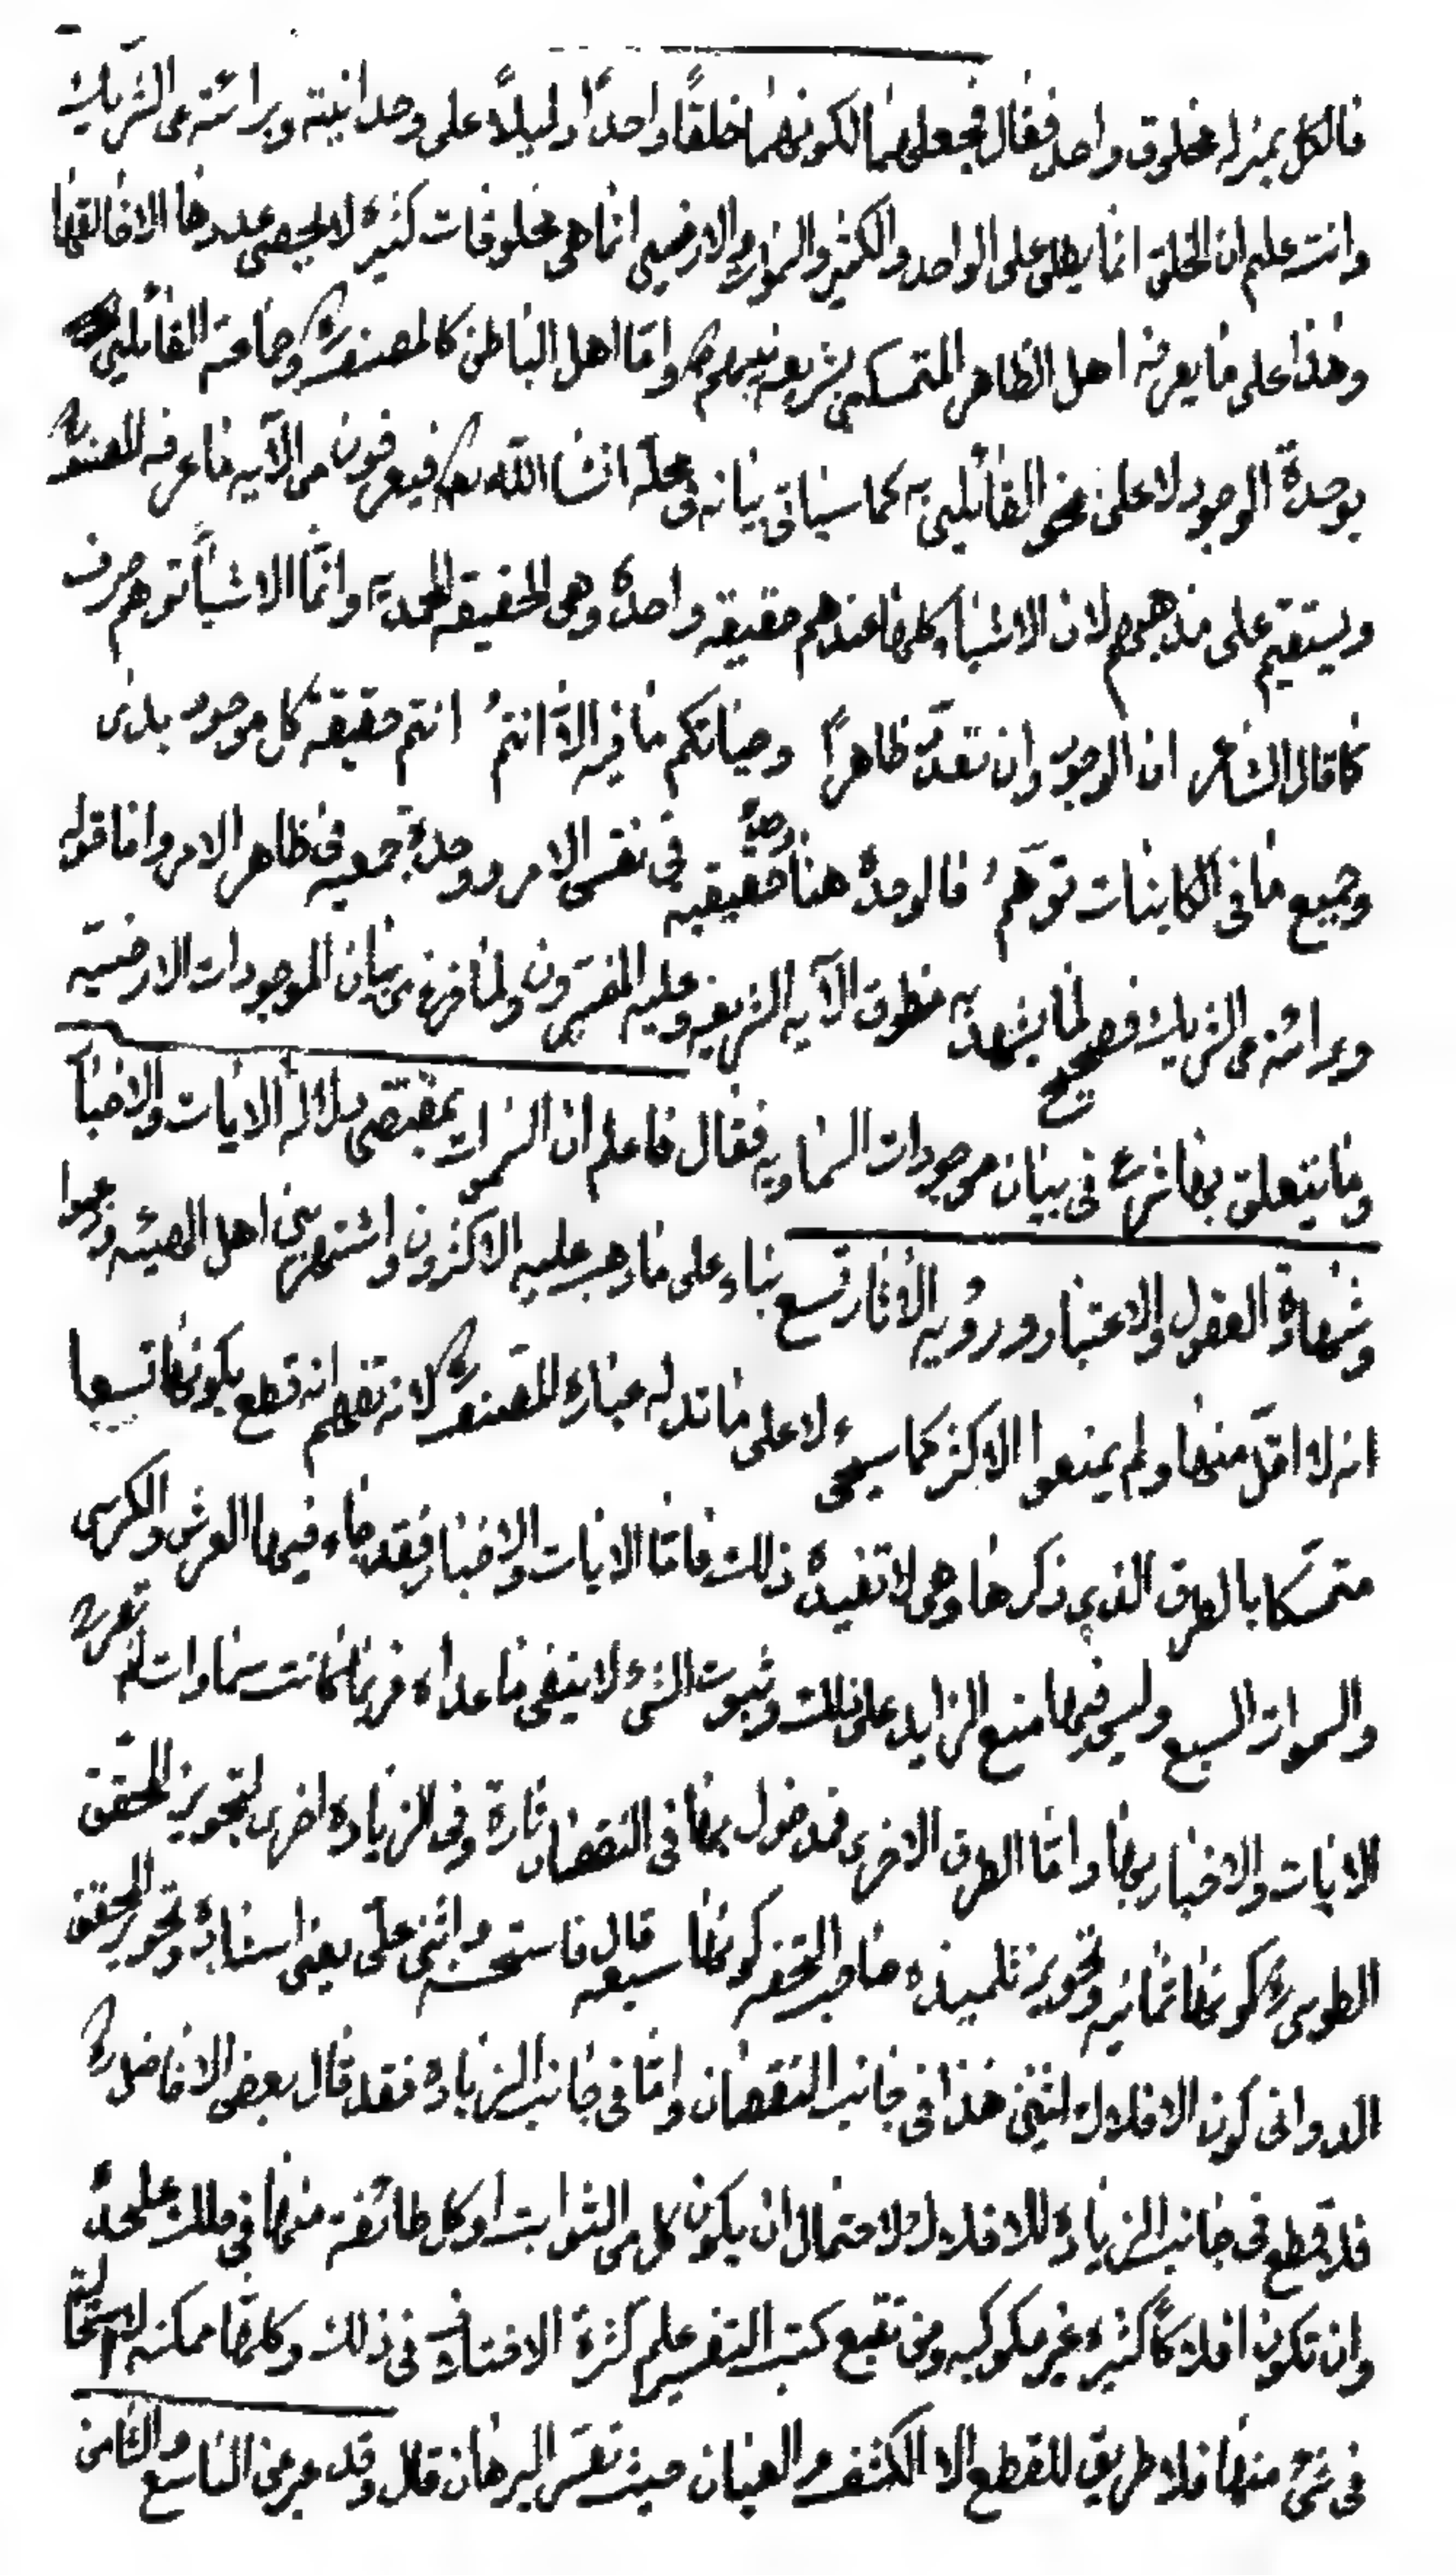 فالكل بمنزلة مخلوق واحد فقال فجعلهما لكونهما خلقًا واحدًا دليلًا على وحدانيته وبرائته عن الشريك
وانت عليم ان الخلق انما يطلق على الواحد والكثير والسموات والارضين انما هى مخلوقات كثيرة لا يحصى عددها الا خالقها
وهذا على ما يعرفه اهل الظاهر المتمسكين بشريعة نبيهم واما اهل الباطن كالمصنف وجماعة القائلين
بوحدة الوجود لا على نحو القائلين به كما سياتى بيانه فى محله انشا الله تعالى فيعرفون من الآيه ما عرفه المصنف
ويستقيم على مذهبهم لان الاشياء كلها عندهم حقيقه واحدة وهى الحقيقه المحمديه وانما الاشيأ توهم صرف
كما قال الشاعر ان الوجود وان تعدّد ظاهرًا وحياتكم ما فيه الّا انتمُ انتم حقيقة كل موجود بدى
وجميع ما فى الكاينات توهّمُ فالوحدة هنا وحدة حقيقيه فى نفس الامر ووحدة جمعيه فى ظاهر الامر واما قوله
وبرائته عن الشريك فصحيح لما يشهد به منطوق الآيه الشريفه وعليه المفسرون ولما فرغ من بيان الموجودات الارضيّه
وما يتعلق بها شرع فى بيان موجودات السماويه فقال فاعلم ان السموات بمقتضى دلالة الايات والاخبار
وشهادة العقول والاعتبار ورؤيه الأثار تسع بناء على ما ذهب عليه الاكثرون واشتهر بين اهل الهيئه وزعموا
انه لا اقلّ منها ولم يمنعوا الاكثر كما سيجىء لا على ما تدل له عبارة المصنف لانه تفهم انه قطع بكونها تسعا
متمسّكا بالطرق الذى ذكرها وهى لا تفيده ذلك فامّا الايات والاخبار فقد جاء فيها العرش والكرسى
والسموات السبع وليس فيها منع الزايد على ذلك وثبوت الشىء لا ينفى ما عداه فربما كانت سماوات لم تعرب
الايات والاخبار بها وامّا الطرق الاخرى فمدخول بها فى النقصان تارة وفى الزيادة اخرى لتجويز المحقّق
الطوسى كونها ثمانيه وتجويز تلميذه صاحب التحفه كونها سبعه قال فاستحسنه واثنى علىّ يعنى استاده وتجويز المحقق
الدوانى كون الافلاك اثنين هذا فى جانب النقصان وامّا فى جانب الزيادة فقد قال بعض الافاضل
فلا قطع فى جانب الزيادة للافلاك لاحتمال ان يكون كل من الثوابت او كل طائفة منها فى فلك علىحدة
وان تكون افلاكًا كثيره غير مكوكبه ومن تتبع كتب التفسير علم كثرة الاختلاف فى ذلك وكلها ممكنه لا استحالة
فى شىء منها فلا طريق للقطع الا الكشف والعيان حيث تعسّر البرهان قال وقد عبر عن التاسع والثامن